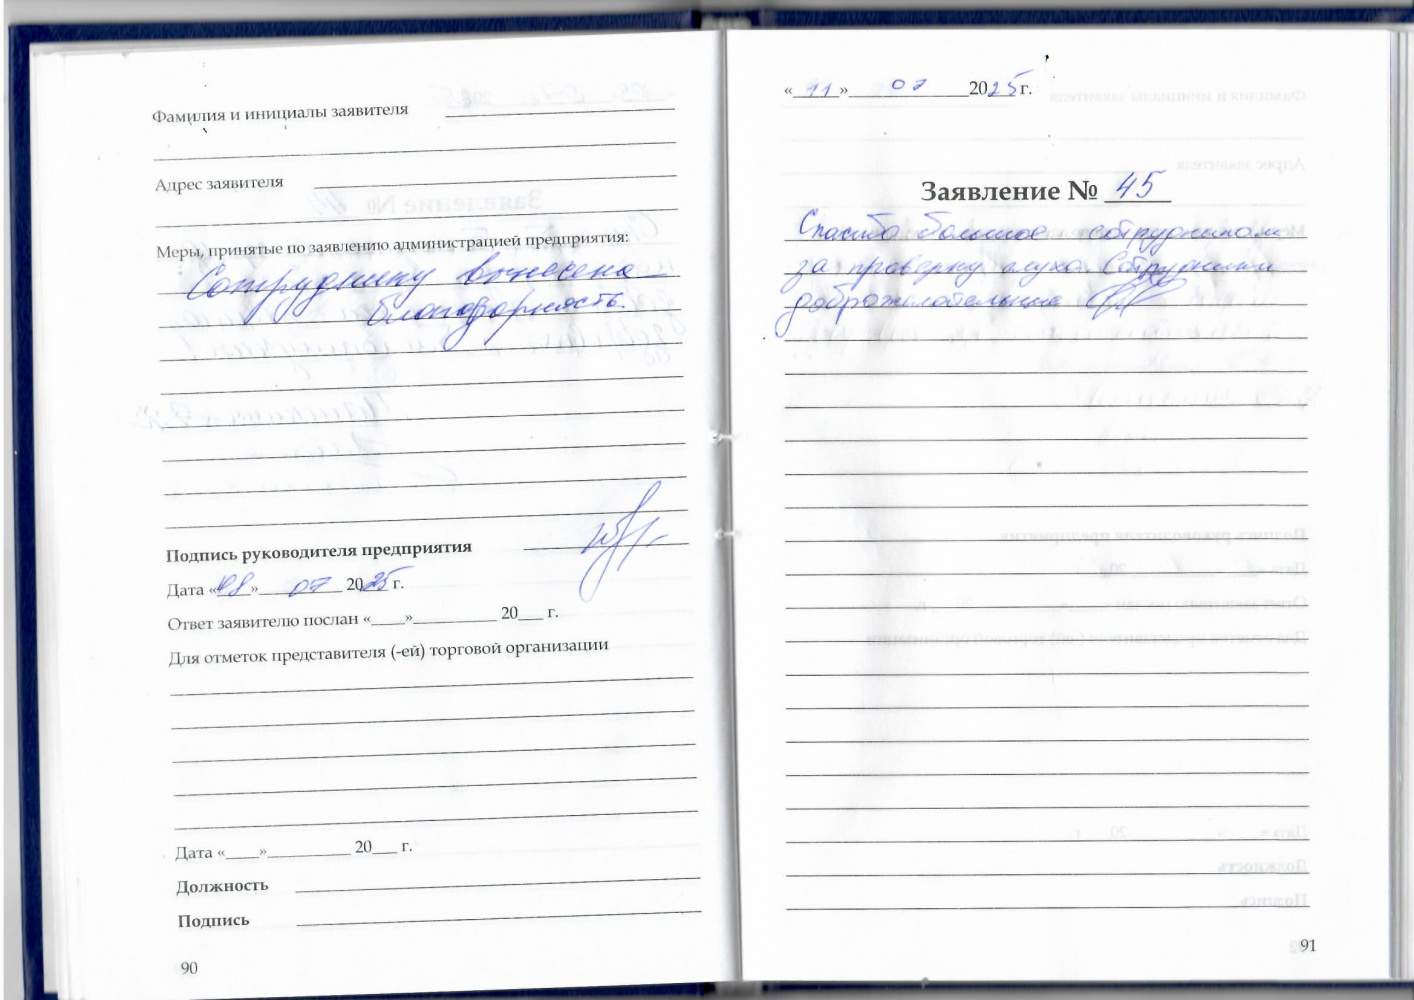 Фамилия и инициалы заявителя
Адрес заявителя
Меры, принятые по заявлению администрацией предприятия:
Сотруднику вынесена
благодарность.
Подпись руководителя предприятия
Дата «08» 07 2025 г.
Ответ заявителю послан «____»__________ 20___ г.
Для отметок представителя (-ей) торговой организации
Дата «____»__________ 20___ г.
Должность
Подпись
90
«11» 07 2025 г.
Заявление № 45
Спасибо большое сотрудникам
за проверку слуха. Сотрудники
доброжелательные
91